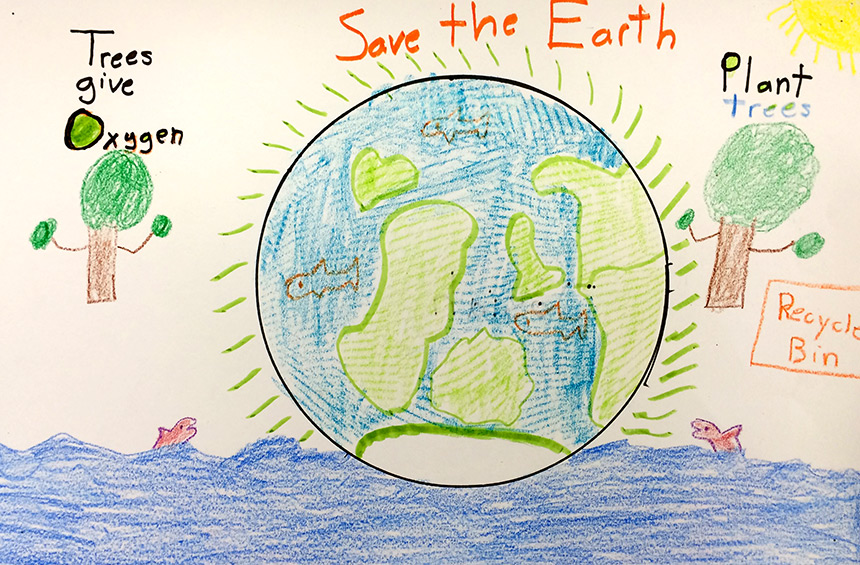 Save the Earth
Trees
give
Oxygen
Plant
trees
Recycle
Bin